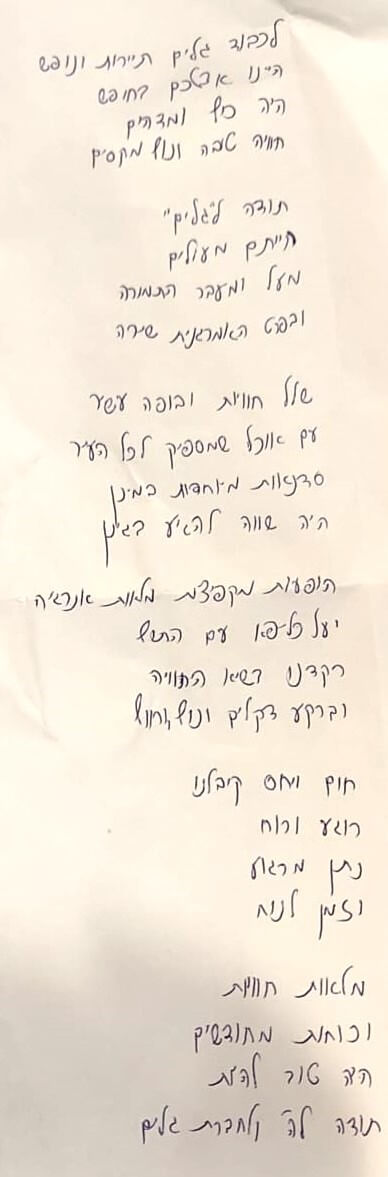 לכבוד גלים תיירות ונופש
היינו אצלכם בחופש
היה כיף ומדהים
חוויה טובה ונוף מקסים
תודה ל"גלים"
הייתם מעולים
מעל ומעבר התמורה
ובפרט האמרגנית שירה
שלל חוויות ובופה עשיר
עם אוכל שמספיק לכל העיר
סדנאות מיוחדות במינן
היה שווה להגיע בגינן
הופעות מקפיצות מלאות אנרגיה
יעל כליפא עם התוף
רקדנו בשיא החוויה
וברקע דקלים ונוף וחוף
חום ויחס קיבלנו
רוגע ורוח
נתן מרגוע
וזמן לנוח
מלאות חוויות
וכוחות מחודשים
היה טוב להיות
תודה לה' ולחברת גלים